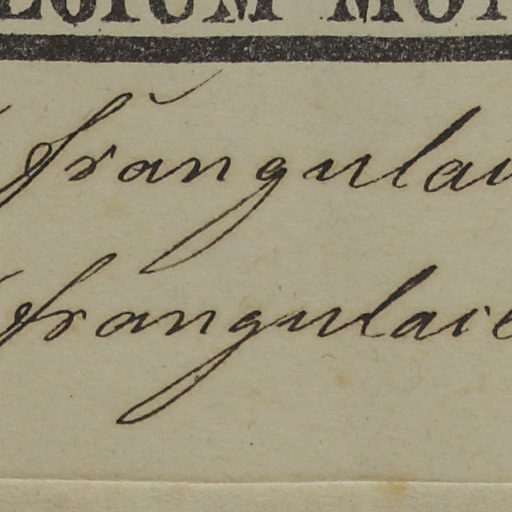 EGIUM MO
frangulai
frangulaie